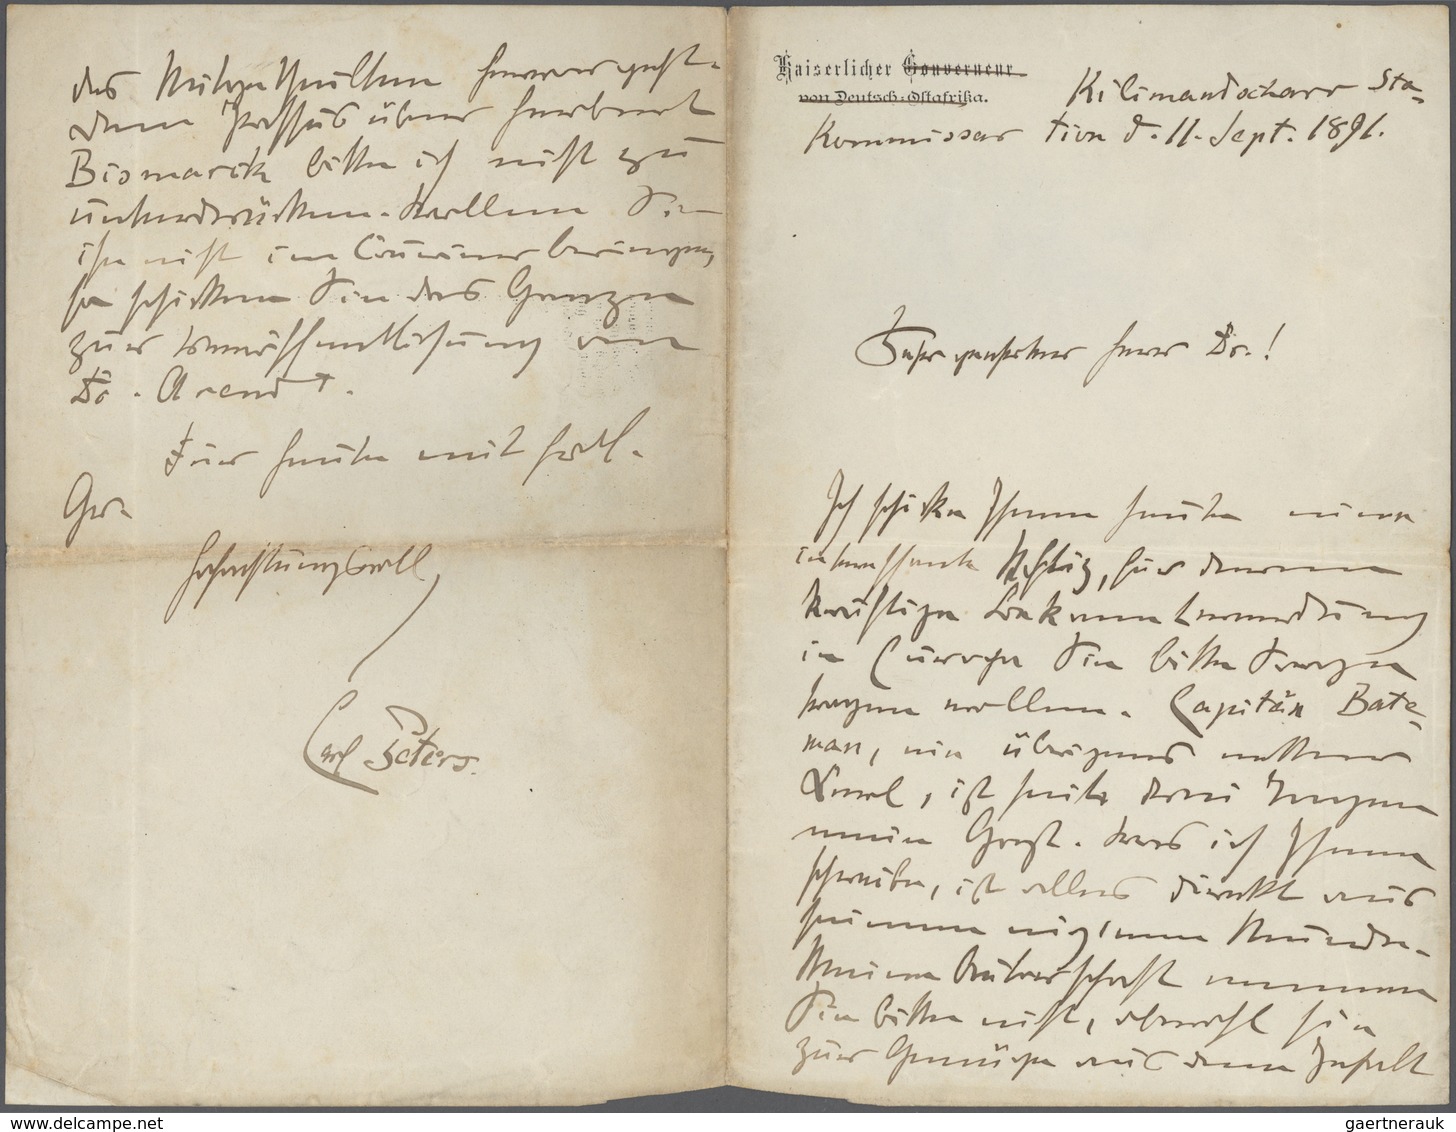 Kaiserlicher Gouverneur
von Deutsch-Ostafrika.
Kilimandscharo Sta-
Kommissar tion d. 11. Sept. 1891.
Sehr geehrter Herr Dr.!
Ich schicke Ihnen heute eine
interessante Notiz, für deren
Verwendung
in Europa Sie bitte Sorge
tragen wollen. Capitän Bate-
man, ein übrigens netter
Kerl, ist heute drei Tage
mein Gast. Was ich Ihnen
schreibe, ist alles direkt aus
seinem eigenen Munde.
Meine Autorschaft nennen
Sie bitte nicht, obwohl sie
zur Genüge aus dem Inhalt
des Mitgetheilten hervorgeht.
Den Passus über Herbert
Bismarck bitte ich nicht zu
unterdrücken. Wollen Sie
ihn nicht im bringen,
so schicken Sie das Ganze
zur Veröffentlichung an
Dr. Arendt.
Für heute mit
Gr.
Hochachtungsvoll
Carl Peters.
delcampe.net
gaertnerauk